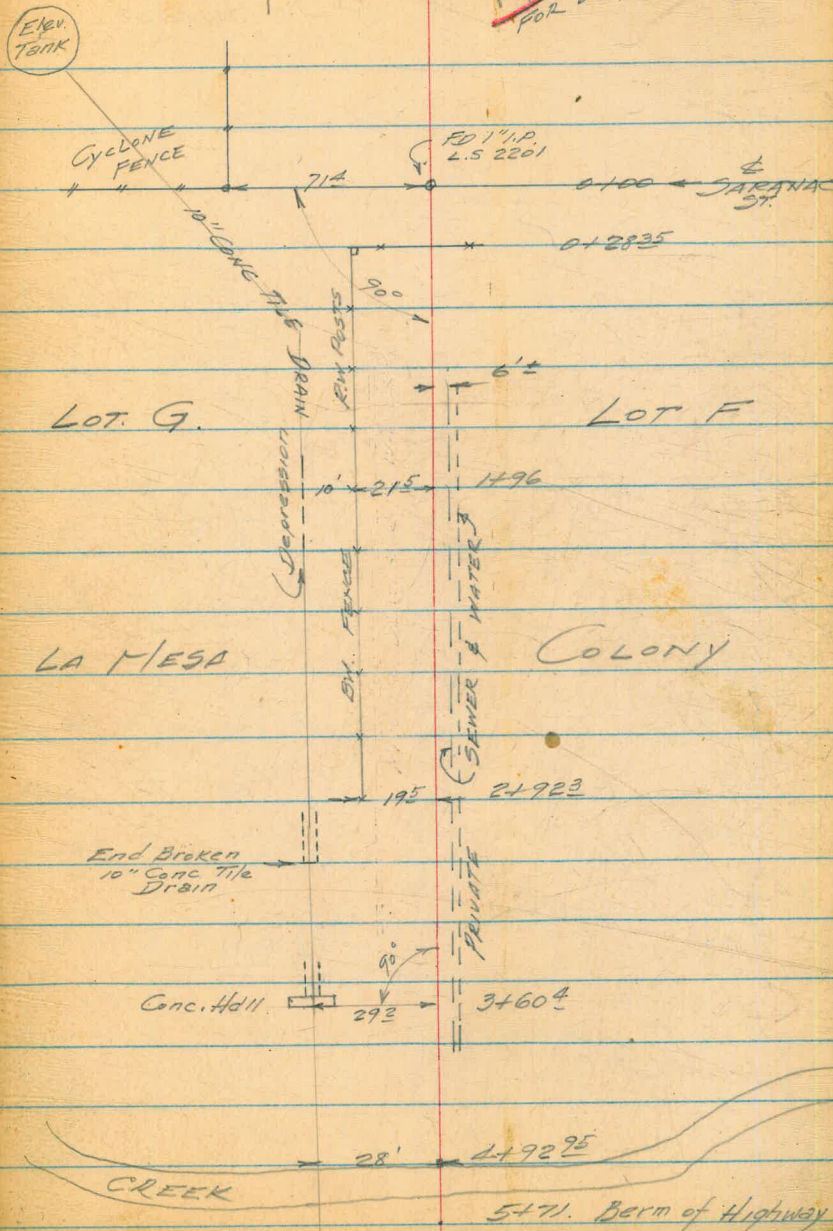 FOR
Elev.
Tank
CYCLONE
FENCE
FD 1" I.P.
L.S 2201
71⁴
0+00
℄
SARANAC
ST.
10" CONC TILE DRAIN
0+28³⁵
90°
R.W POSTS
6'±
LOT. G.
LOT F
Depression
10'
21⁵
1+96
BW. FENCE
SEWER & WATER
LA MESA
COLONY
19⁵
2+92³
End Broken
10" Conc Tile
Drain
PRIVATE
90°
Conc. Hdll
29²
3+60⁴
28'
4+92⁹⁵
CREEK
5+71. Berm of Highway